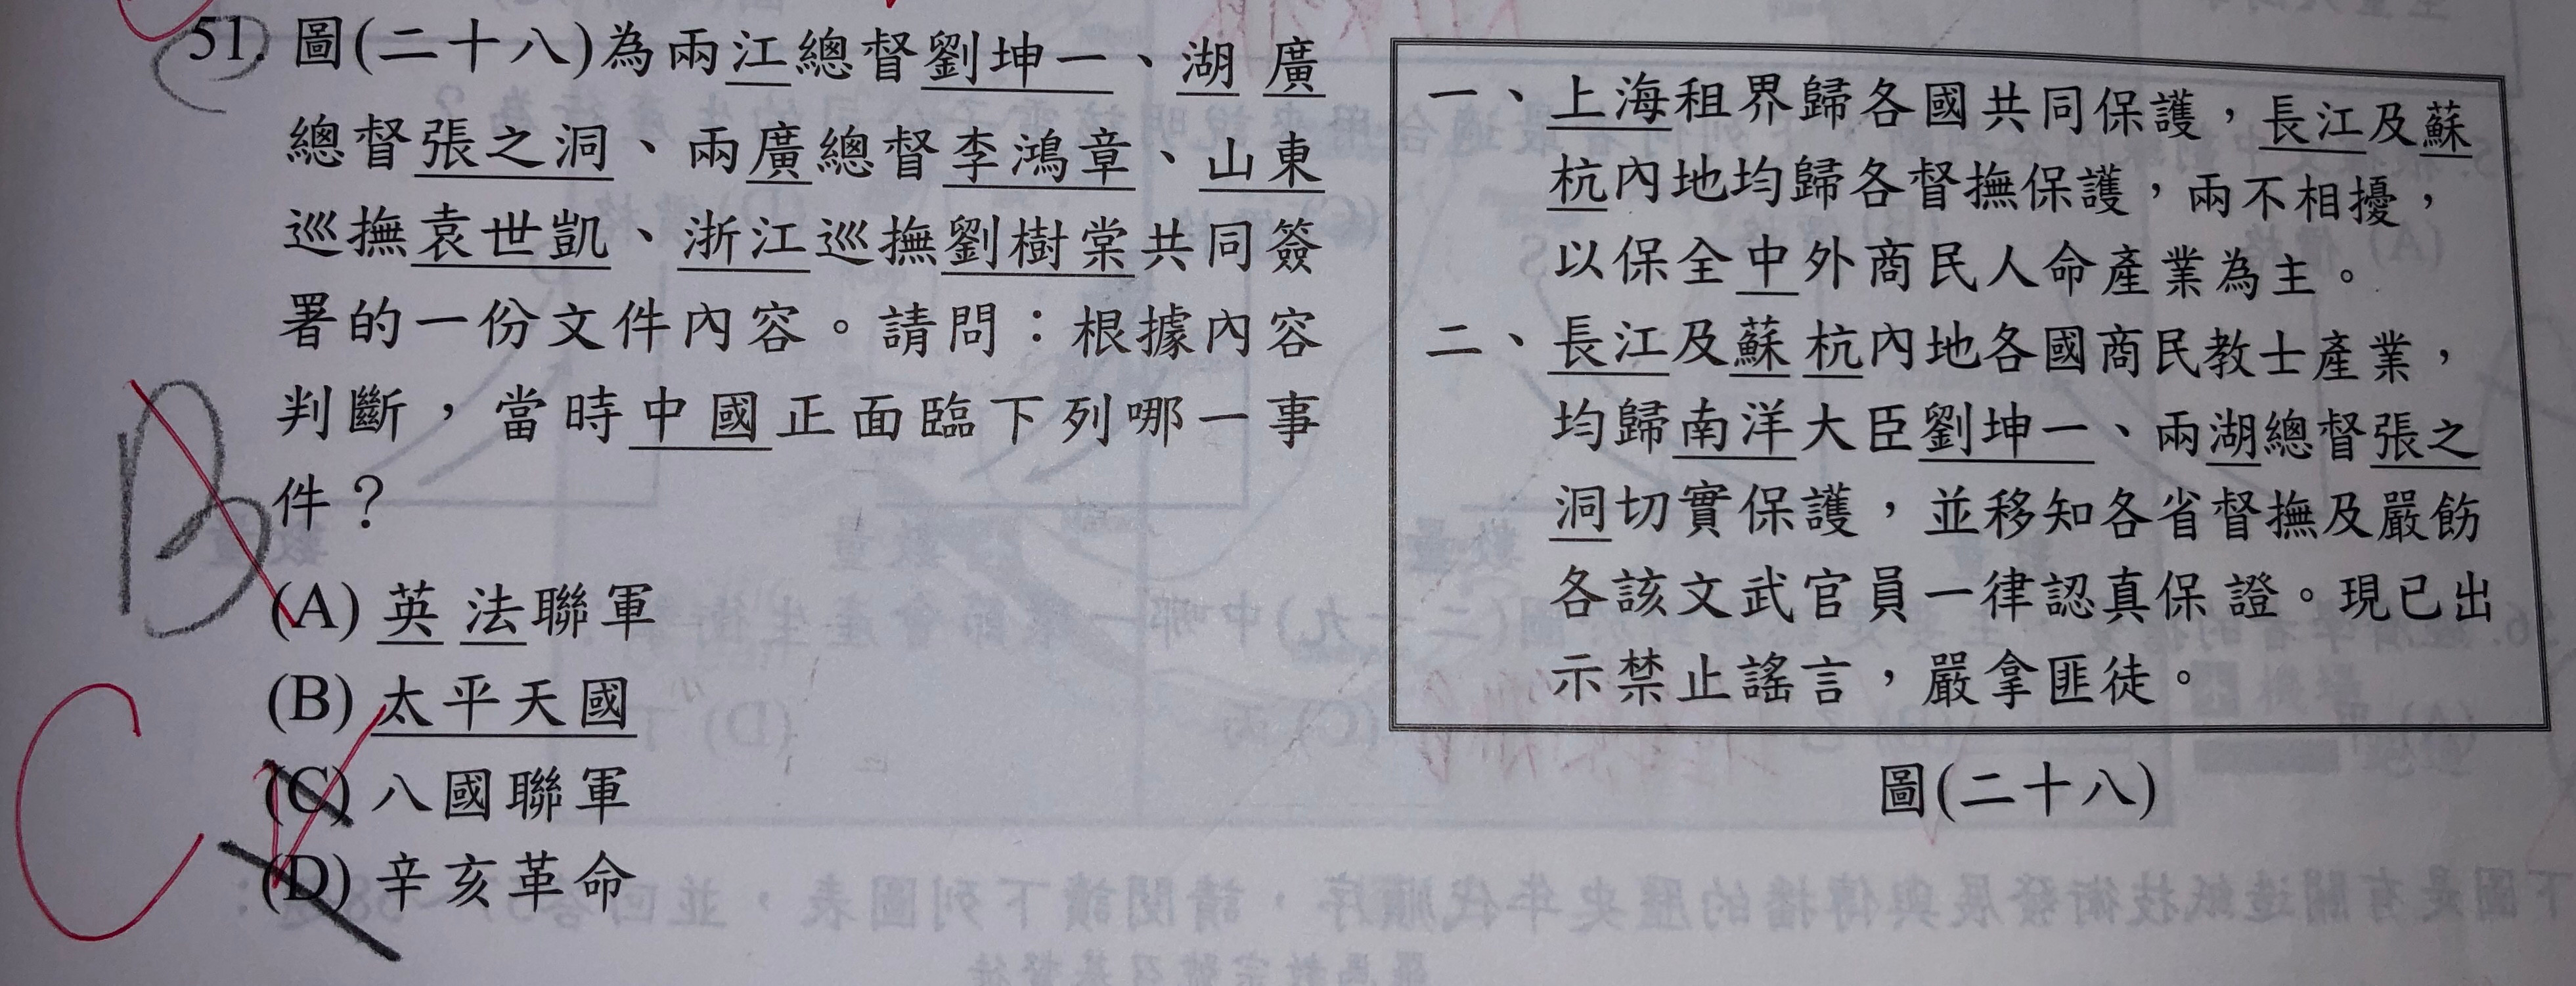 51. 圖(二十八)為兩江總督劉坤一、湖廣
總督張之洞、兩廣總督李鴻章、山東
巡撫袁世凱、浙江巡撫劉樹棠共同簽
署的一份文件內容。請問：根據內容
判斷，當時中國正面臨下列哪一事
件？
(A) 英法聯軍
(B) 太平天國
(C) 八國聯軍
(D) 辛亥革命
B
C
一、上海租界歸各國共同保護，長江及蘇
杭內地均歸各督撫保護，兩不相擾，
以保全中外商民人命產業為主。
二、長江及蘇杭內地各國商民教士產業，
均歸南洋大臣劉坤一、兩湖總督張之
洞切實保護，並移知各省督撫及嚴飭
各該文武官員一律認真保證。現已出
示禁止謠言，嚴拿匪徒。
圖(二十八)